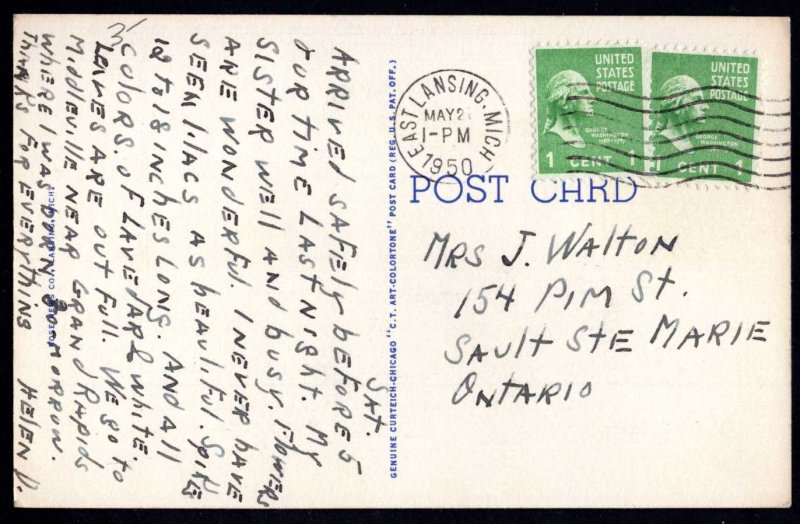 SAT.
ARRIVED SAFELY BEFORE 5
OUR TIME LAST NIGHT. MY
SISTER WELL AND BUSY. FLOWERS
ARE WONDERFUL. I NEVER HAVE
SEEN LILACS AS BEAUTIFUL. SPIKES
12 TO 18 INCHES LONG. AND ALL
COLORS. OF LAVEDAR & WHITE.
LEAVES ARE OUT FULL. WE GO TO
MIDDLEVILLE NEAR GRAND RAPIDS
WHERE I WAS BORN ON MORROW.
THANKS FOR EVERYTHING HELEN D.
GENUINE CURTEICH-CHICAGO "C.T. ART-COLORTONE" POST CARD (REG. U.S. PAT. OFF.)
EAST LANSING, MICH.
MAY 2
1-PM
1950
UNITED
STATES
POSTAGE
GEORGE
WASHINGTON
1 CENT 1
UNITED
STATES
POSTAGE
GEORGE
WASHINGTON
CENT 1
POST CARD
MRS J. WALTON
154 PIM ST.
SAULT STE MARIE
ONTARIO